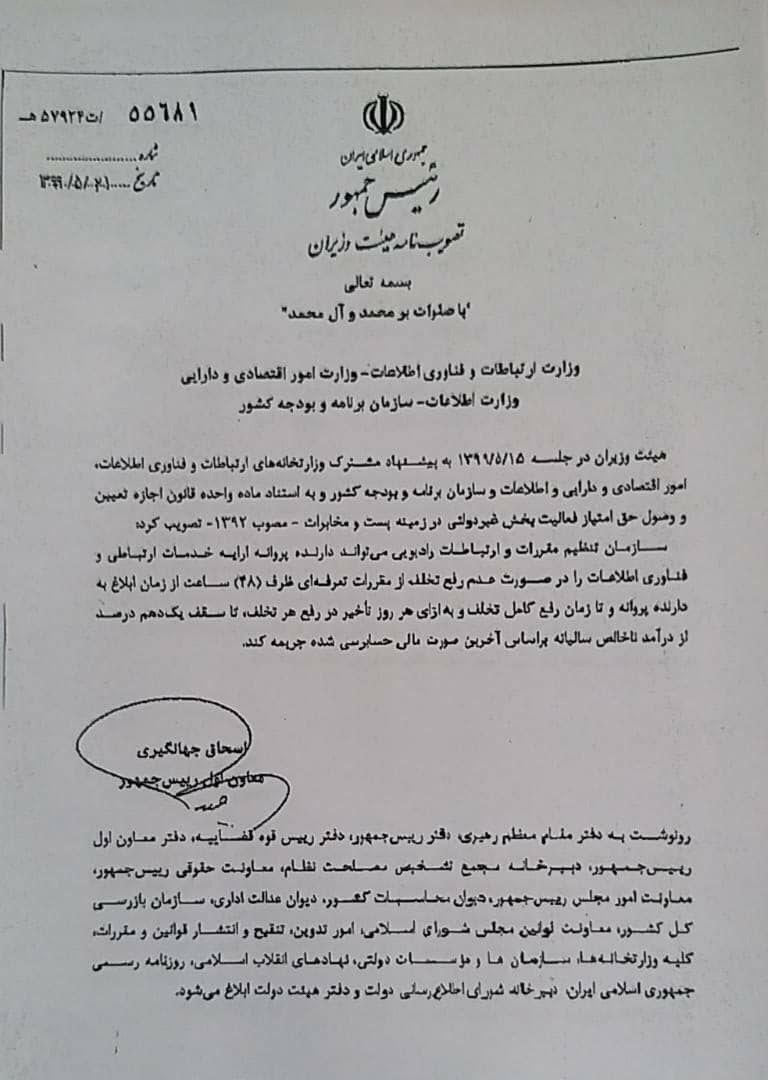 ۵۵۶۸۱ /ت۵۷۹۲۴هـ
شماره......................
تاریخ.....۱۳۹۹/۵/۲۱
جمهوری اسلامی ایران
رئیس جمهور
تصویب نامه هیئت وزیران
بسمه تعالی
"با صلوات بر محمد و آل محمد"
وزارت ارتباطات و فناوری اطلاعات - وزارت امور اقتصادی و دارایی
وزارت اطلاعات - سازمان برنامه و بودجه کشور
هیئت وزیران در جلسه ۱۳۹۹/۵/۱۵ به پیشنهاد مشترک وزارتخانه‌های ارتباطات و فناوری اطلاعات،
امور اقتصادی و دارایی و اطلاعات و سازمان برنامه و بودجه کشور و به استناد ماده واحده قانون اجازه تعیین
و وصول حق امتیاز فعالیت بخش غیردولتی در زمینه پست و مخابرات - مصوب ۱۳۹۲- تصویب کرد:
سازمان تنظیم مقررات و ارتباطات رادیویی می‌تواند دارنده پروانه ارایه خدمات ارتباطی و
فناوری اطلاعات را در صورت عدم رفع تخلف از مقررات تعرفه‌ای ظرف (۴۸) ساعت از زمان ابلاغ به
دارنده پروانه و تا زمان رفع کامل تخلف و به ازای هر روز تأخیر در رفع هر تخلف، تا سقف یک‌دهم درصد
از درآمد ناخالص سالیانه براساس آخرین صورت مالی حسابرسی شده جریمه کند.
اسحاق جهانگیری
معاون اول رییس‌جمهور
رونوشت به دفتر مقام معظم رهبری، دفتر رییس‌جمهور، دفتر رییس قوه قضاییه، دفتر معاون اول
رییس‌جمهور، دبیرخانه مجمع تشخیص مصلحت نظام، معاونت حقوقی رییس‌جمهور،
معاونت امور مجلس رییس‌جمهور، دیوان محاسبات کشور، دیوان عدالت اداری، سازمان بازرسی
کل کشور، معاونت قوانین مجلس شورای اسلامی، امور تدوین، تنقیح و انتشار قوانین و مقررات،
کلیه وزارتخانه‌ها، سازمان ها و مؤسسات دولتی، نهادهای انقلاب اسلامی، روزنامه رسمی
جمهوری اسلامی ایران، دبیرخانه شورای اطلاع‌رسانی دولت و دفتر هیئت دولت ابلاغ می‌شود.